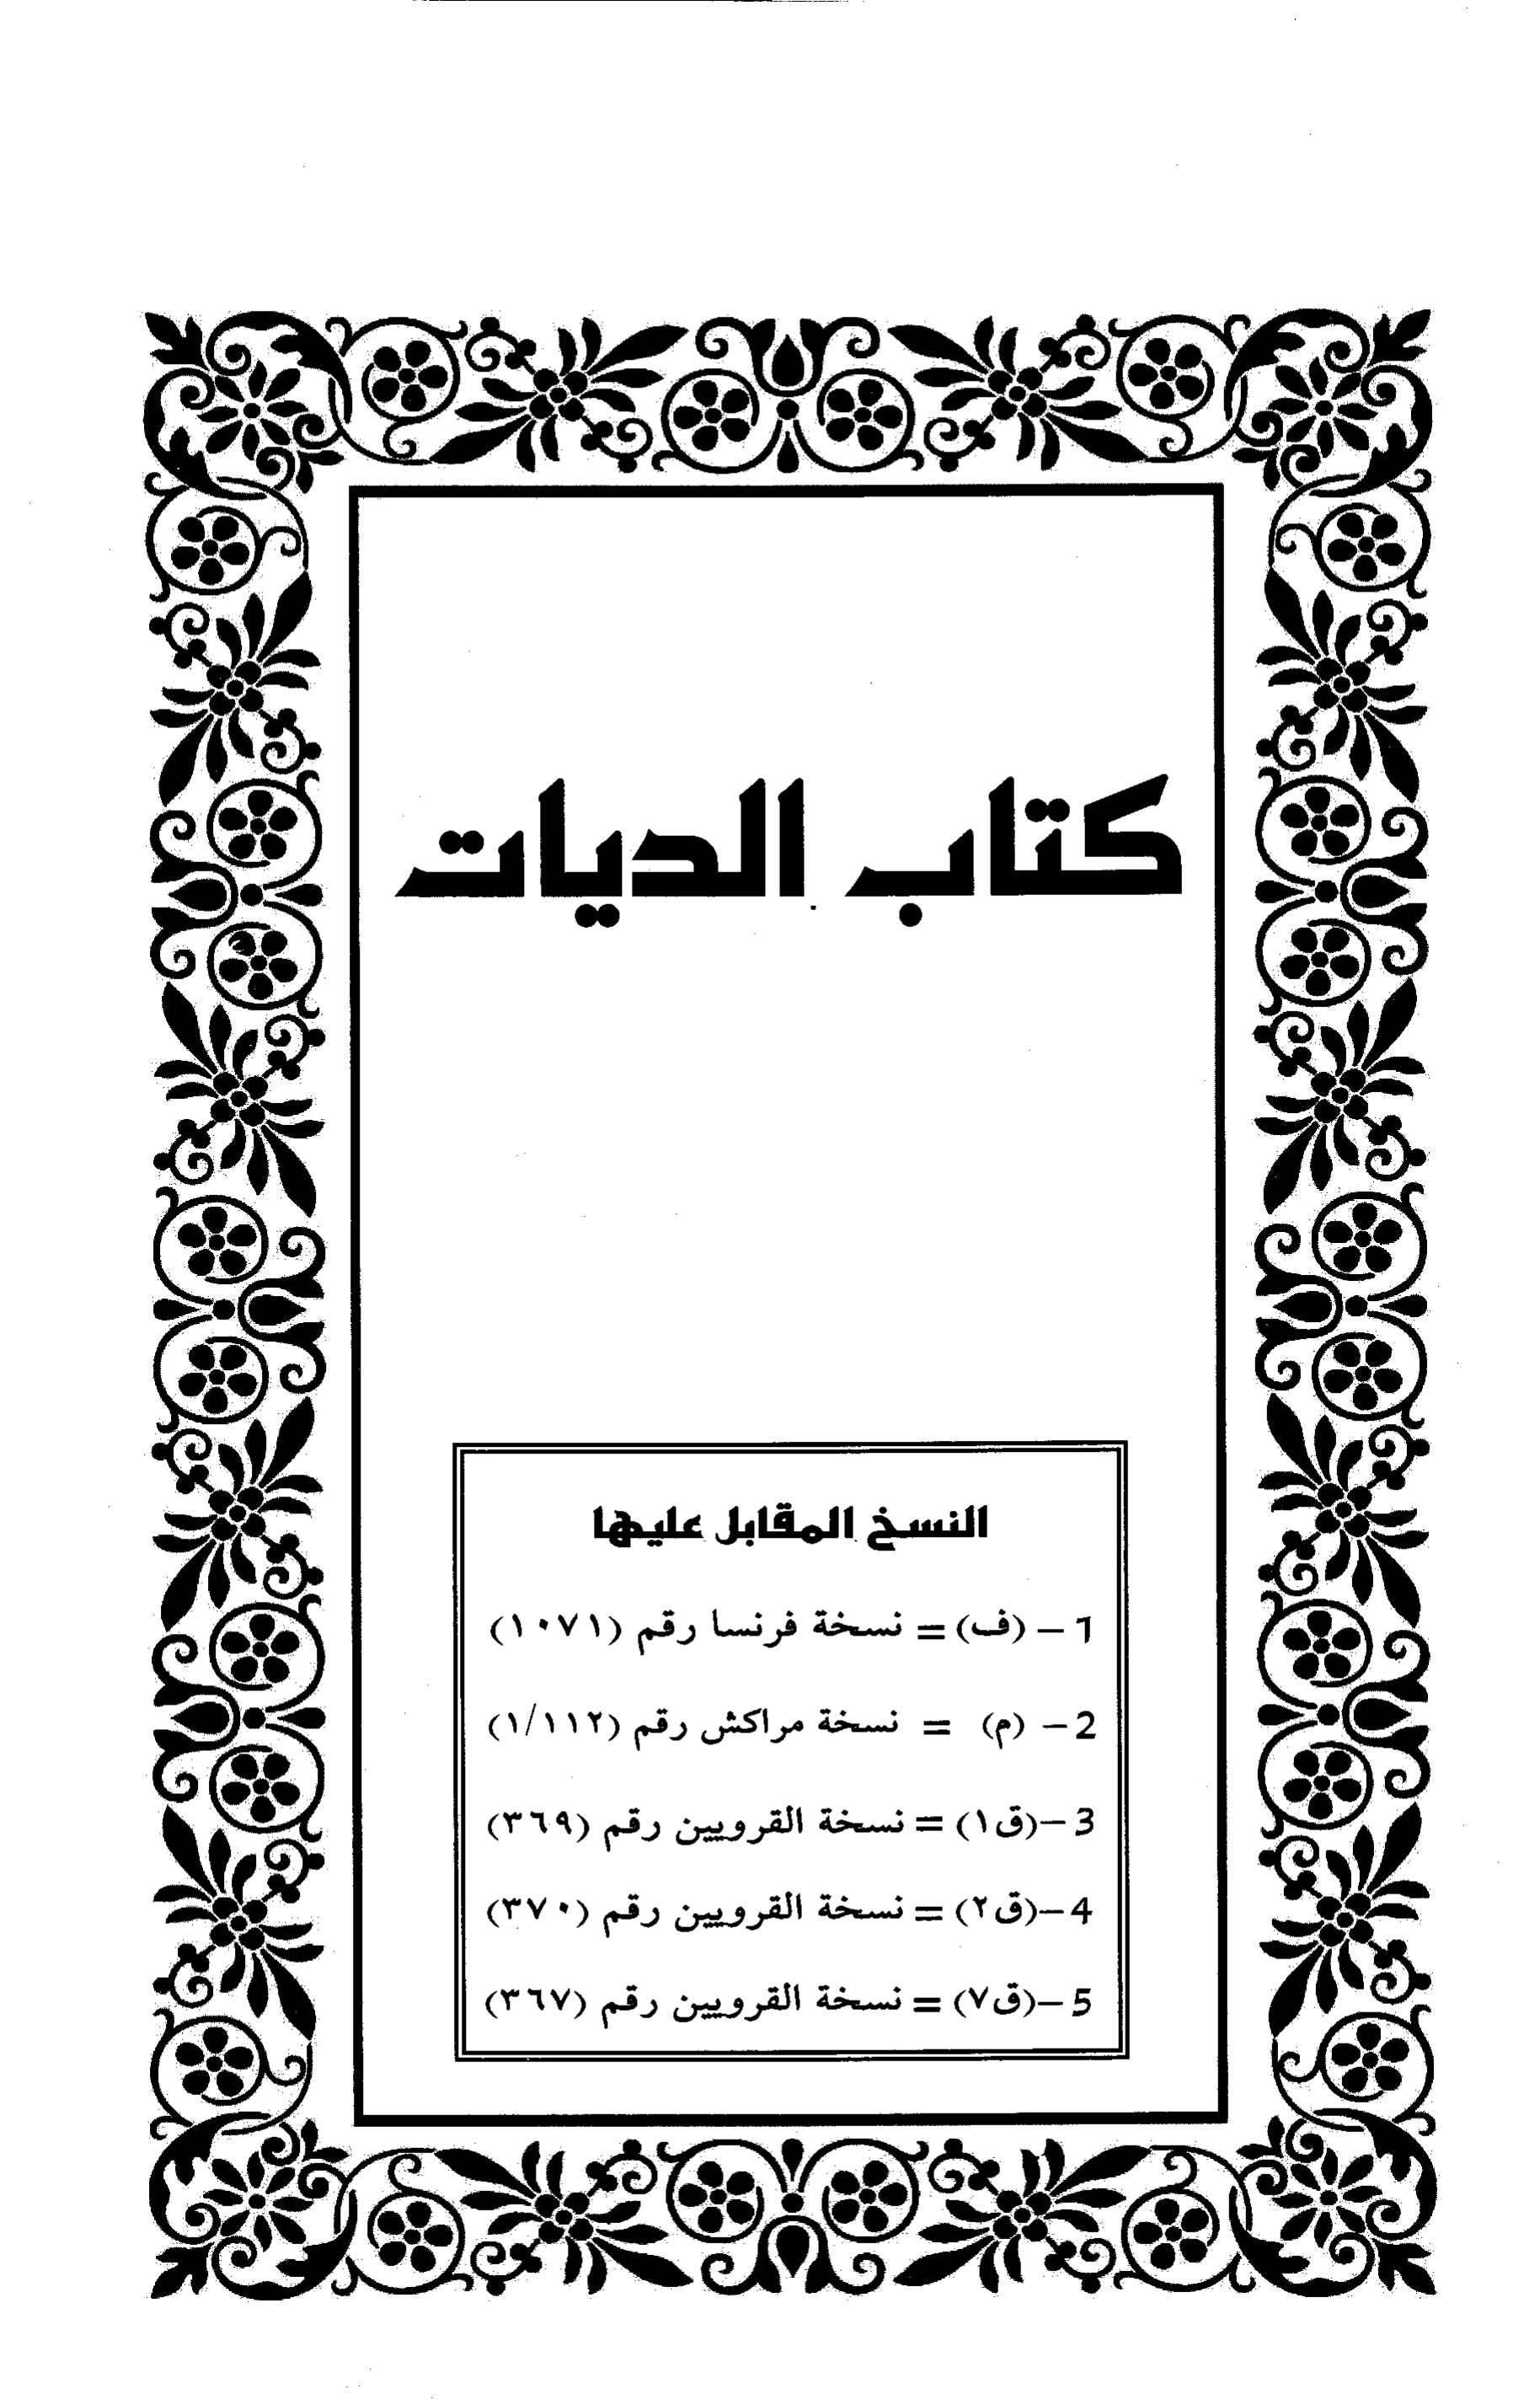 كتاب الديات
النسخ المقابل عليها
1- (ف) = نسخة فرنسا رقم (١٠٧١)
2- (م) = نسخة مراكش رقم (١/١١٢)
3-(ق١) = نسخة القرويين رقم (٣٦٩)
4-(ق٢) = نسخة القرويين رقم (٣٧٠)
5-(ق٧) = نسخة القرويين رقم (٣٦٧)